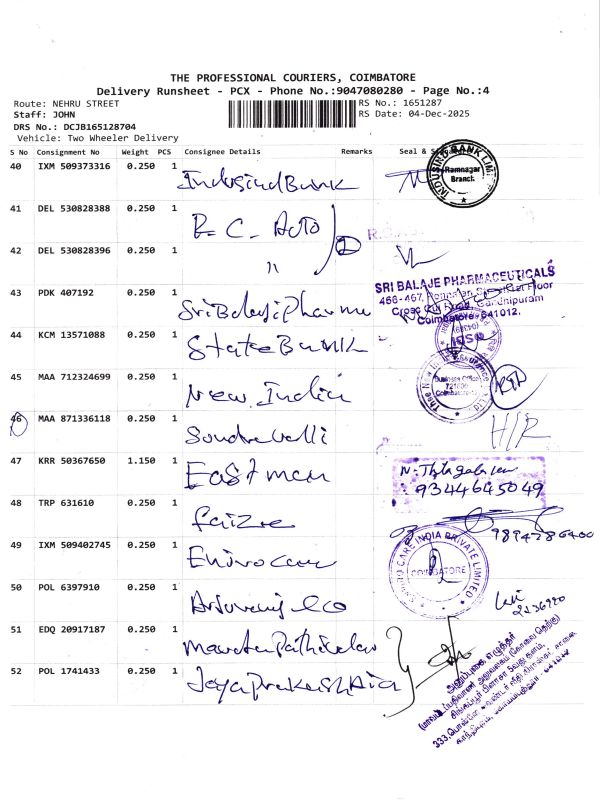 THE PROFESSIONAL COURIERS, COIMBATORE
Delivery Runsheet - PCX - Phone No.:9047080280 - Page No.:4
Route: NEHRU STREET RS No.: 1651287
Staff: JOHN RS Date: 04-Dec-2025
DRS No.: DCJB165128704
Vehicle: Two Wheeler Delivery
S No Consignment No Weight PCS Consignee Details Remarks Seal &
40 IXM 509373316 0.250 1 IndusindBank
INDUSIND BANK LIMITED
Ramnagar
Branch.
41 DEL 530828388 0.250 1 B.C. Auto 2
42 DEL 530828396 0.250 1 "
43 PDK 407192 0.250 1 SriBalaji Pharma
SRI BALAJE PHARMACEUTICALS
466-467, Floor
Cross Cut Road, Gandhipuram
Coimbatore-641012.
44 KCM 13571088 0.250 1 State Bank
45 MAA 712324699 0.250 1 New India
Business Office
721600
Coimbatore
46 MAA 871336118 0.250 1
H/R
47 KRR 50367650 1.150 1 Eastman
9344645049
48 TRP 631610 0.250 1 Faize
9894286400
49 IXM 509402745 0.250 1 Envirocare
ENVIRO CARE INDIA PRIVATE LIMITED
COIMBATORE
50 POL 6397910 0.250 1
2236920
51 EDQ 20917187 0.250 1
52 POL 1741433 0.250 1 Jayaprakash